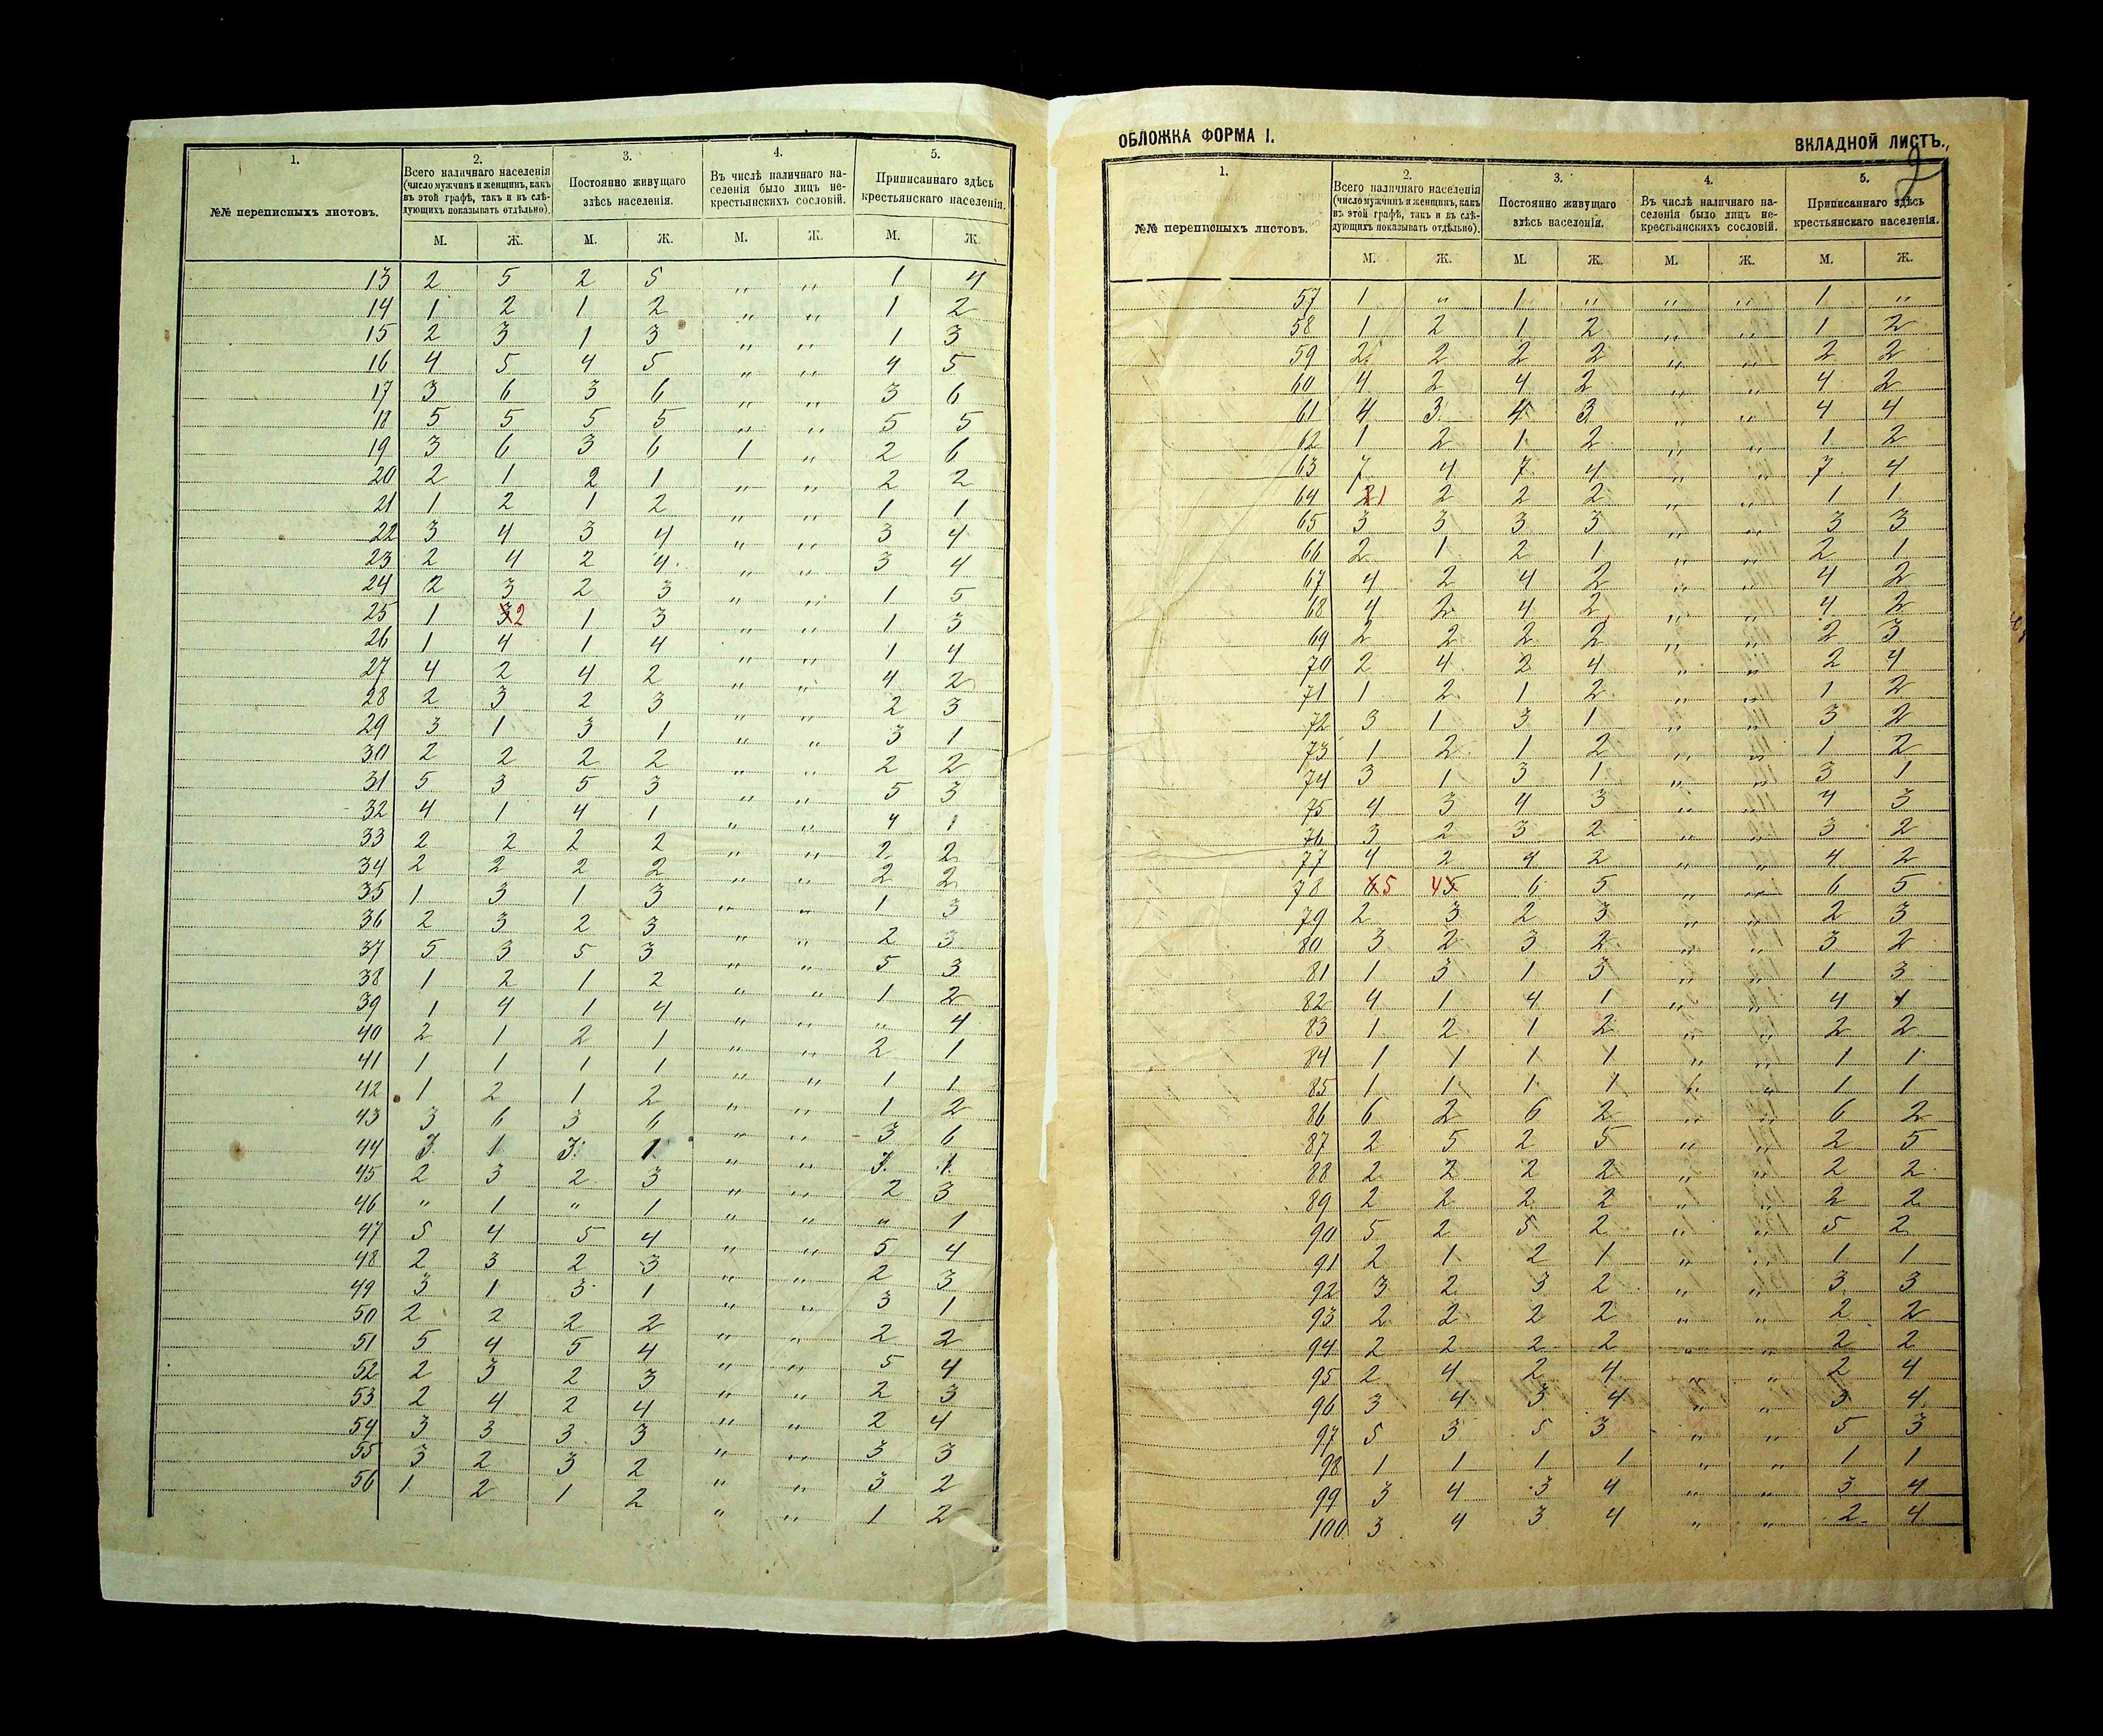 1. 2. 3. 4. 5.
№№ переписныхъ листовъ. Всего наличнаго населенія (число мужчинъ и женщинъ, какъ въ этой графѣ, такъ и въ слѣдующихъ показывать отдѣльно). Постоянно живущаго здѣсь населенія. Въ числѣ наличнаго населенія было лицъ некрестьянскихъ сословій. Приписаннаго здѣсь крестьянскаго населенія.
М. Ж. М. Ж. М. Ж. М. Ж.
13 2 5 2 5 " " 1 4
14 1 2 1 2 " " 1 2
15 2 3 1 3 " " 1 3
16 4 5 4 5 " " 4 5
17 3 6 3 6 " " 3 6
18 5 5 5 5 " " 5 5
19 3 6 3 6 1 " 2 6
20 2 1 2 1 " " 2 2
21 1 2 1 2 " " 1 1
22 3 4 3 4 " " 3 4
23 2 4 2 4 " " 3 4
24 2 3 2 3 " " 1 5
25 1 3 2 1 3 " " 1 3
26 1 4 1 4 " " 1 4
27 4 2 4 2 " " 4 2
28 2 3 2 3 " " 2 3
29 3 1 3 1 " " 3 1
30 2 2 2 2 " " 2 2
31 5 3 5 3 " " 5 3
32 4 1 4 1 " " 4 1
33 2 2 2 2 " " 2 2
34 2 2 2 2 " " 2 2
35 1 3 1 3 " " 1 3
36 2 3 2 3 " " 2 3
37 5 3 5 3 " " 5 3
38 1 2 1 2 " " 1 2
39 1 4 1 4 " " " 4
40 2 1 2 1 " " 2 1
41 1 1 1 1 " " 1 1
42 1 2 1 2 " " 1 2
43 3 6 3 6 " " 3 6
44 3 1 3 1 " " 3 1
45 2 3 2 3 " " 2 3
46 " 1 " 1 " " " 1
47 5 4 5 4 " " 5 4
48 2 3 2 3 " " 2 3
49 3 1 3 1 " " 3 1
50 2 2 2 2 " " 2 2
51 5 4 5 4 " " 5 4
52 2 3 2 3 " " 2 3
53 2 4 2 4 " " 2 4
54 3 3 3 3 " " 3 3
55 3 2 3 2 " " 3 2
56 1 2 1 2 " " 1 2
ОБЛОЖКА ФОРМА I. ВКЛАДНОЙ ЛИСТЪ.
2
1. 2. 3. 4. 5.
№№ переписныхъ листовъ. Всего наличнаго населенія (число мужчинъ и женщинъ, какъ въ этой графѣ, такъ и въ слѣдующихъ показывать отдѣльно). Постоянно живущаго здѣсь населенія. Въ числѣ наличнаго населенія было лицъ некрестьянскихъ сословій. Приписаннаго здѣсь крестьянскаго населенія.
М. Ж. М. Ж. М. Ж. М. Ж.
57 1 " 1 " " " 1 "
58 1 2 1 2 " " 1 2
59 2 2 2 2 " " 2 2
60 4 2 4 2 " " 4 2
61 4 3 4 3 " " 4 4
62 1 2 1 2 " " 1 2
63 7 4 7 4 " " 7 4
64 2 1 2 2 2 " " 1 1
65 3 3 3 3 " " 3 3
66 2 1 2 1 " " 2 1
67 4 2 4 2 " " 4 2
68 4 2 4 2 " " 4 2
69 2 2 2 2 " " 2 3
70 2 4 2 4 " " 2 4
71 1 2 1 2 " " 1 2
72 3 1 3 1 " " 3 2
73 1 2 1 2 " " 1 2
74 3 1 3 1 " " 3 1
75 4 3 4 3 " " 4 3
76 3 2 3 2 " " 3 2
77 4 2 4 2 " " 4 2
78 6 5 4 5 6 5 " " 6 5
79 2 3 2 3 " " 2 3
80 3 2 3 2 " " 3 2
81 1 3 1 3 " " 1 3
82 4 1 4 1 " " 4 1
83 1 2 1 2 " " 2 2
84 1 1 1 1 " " 1 1
85 1 1 1 1 " " 1 1
86 6 2 6 2 " " 6 2
87 2 5 2 5 " " 2 5
88 2 2 2 2 " " 2 2
89 2 2 2 2 " " 2 2
90 5 2 5 2 " " 5 2
91 2 1 2 1 " " 1 1
92 3 2 3 2 " " 3 3
93 2 2 2 2 " " 2 2
94 2 2 2 2 " " 2 2
95 2 4 2 4 " " 2 4
96 3 4 3 4 " " 3 4
97 5 3 5 3 " " 5 3
98 1 1 1 1 " " 1 1
99 3 4 3 4 " " 3 4
100 3 4 3 4 " " 2 4